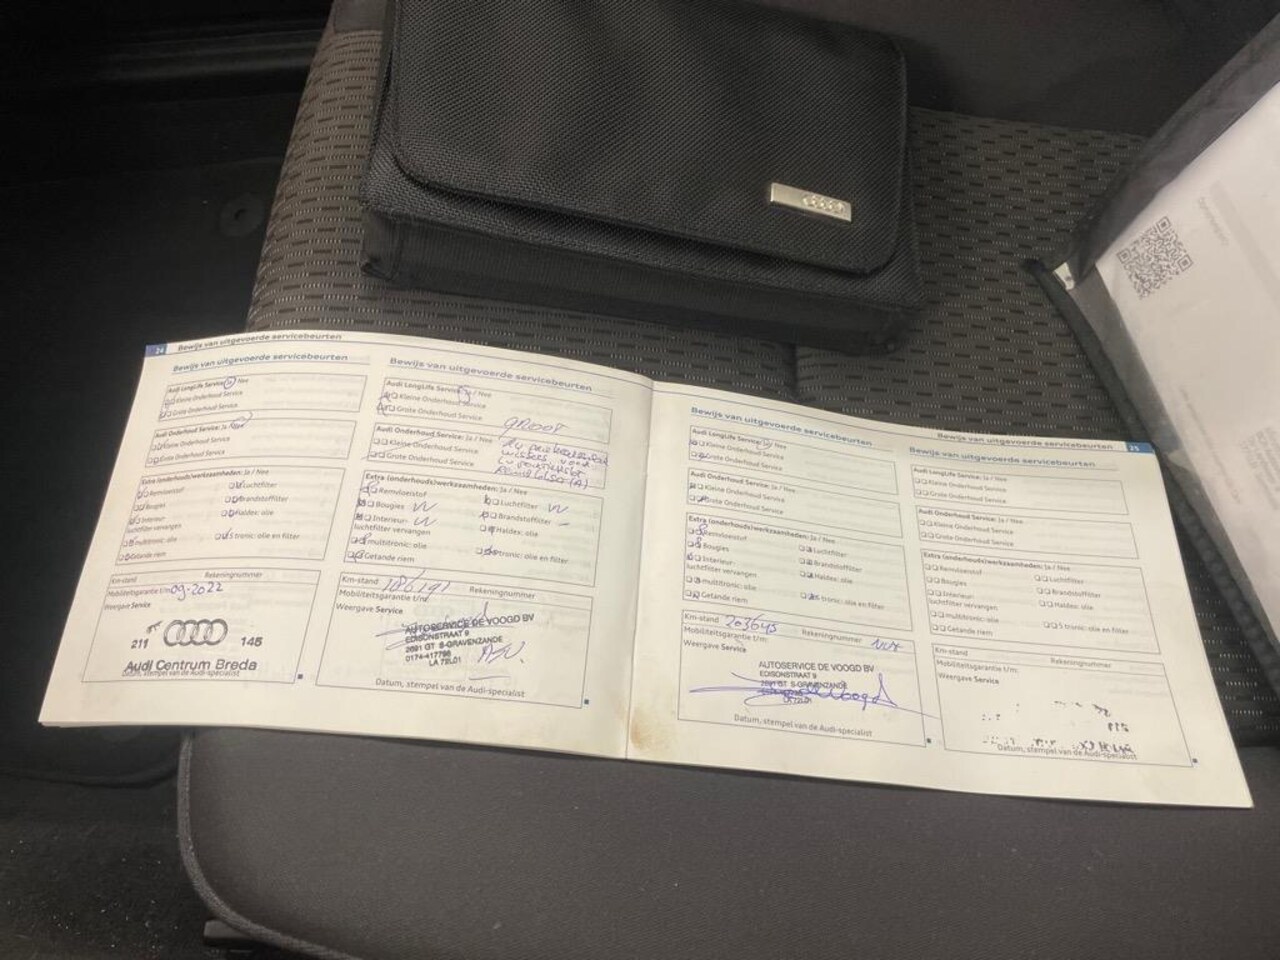 24 Bewijs van uitgevoerde servicebeurten
Bewijs van uitgevoerde servicebeurten
Audi LongLife Service: Ja / Nee
Kleine Onderhoud Service
Grote Onderhoud Service
Audi Onderhoud Service: Ja / Nee
Kleine Onderhoud Service
Grote Onderhoud Service
Extra (onderhouds)werkzaamheden: Ja / Nee
Remvloeistof
Luchtfilter
Bougies
Brandstoffilter
Interieur-
luchtfilter vervangen
Haldex: olie
multitronic: olie
S tronic: olie en filter
Getande riem
Km-stand
Rekeningnummer
Mobiliteitsgarantie t/m: 09-2022
Weergave Service
211
145
Audi Centrum Breda
Datum, stempel van de Audi-specialist
Bewijs van uitgevoerde servicebeurten
Audi LongLife Service: Ja / Nee
Kleine Onderhoud Service
Grote Onderhoud Service
Audi Onderhoud Service: Ja / Nee
Kleine Onderhoud Service
Grote Onderhoud Service
Extra (onderhouds)werkzaamheden: Ja / Nee
Remvloeistof
Luchtfilter
Bougies
Brandstoffilter
Interieur-
luchtfilter vervangen
Haldex: olie
multitronic: olie
S tronic: olie en filter
Getande riem
Km-stand 186191
Rekeningnummer
Mobiliteitsgarantie t/m:
Weergave Service
AUTOSERVICE DE VOOGD BV
EDISONSTRAAT 9
2691 GT S-GRAVENZANDE
0174-417798
LA 72L01
Datum, stempel van de Audi-specialist
Bewijs van uitgevoerde servicebeurten
Audi LongLife Service: Ja / Nee
Kleine Onderhoud Service
Grote Onderhoud Service
Audi Onderhoud Service: Ja / Nee
Kleine Onderhoud Service
Grote Onderhoud Service
Extra (onderhouds)werkzaamheden: Ja / Nee
Remvloeistof
Luchtfilter
Bougies
Brandstoffilter
Interieur-
luchtfilter vervangen
Haldex: olie
multitronic: olie
S tronic: olie en filter
Getande riem
Km-stand 203645
Rekeningnummer
Mobiliteitsgarantie t/m:
Weergave Service
AUTOSERVICE DE VOOGD BV
EDISONSTRAAT 9
2691 GT S-GRAVENZANDE
LA72L01
Datum, stempel van de Audi-specialist
Bewijs van uitgevoerde servicebeurten 25
Bewijs van uitgevoerde servicebeurten
Audi LongLife Service: Ja / Nee
Kleine Onderhoud Service
Grote Onderhoud Service
Audi Onderhoud Service: Ja / Nee
Kleine Onderhoud Service
Grote Onderhoud Service
Extra (onderhouds)werkzaamheden: Ja / Nee
Remvloeistof
Luchtfilter
Bougies
Brandstoffilter
Interieur-
luchtfilter vervangen
Haldex: olie
multitronic: olie
S tronic: olie en filter
Getande riem
Km-stand
Rekeningnummer
Mobiliteitsgarantie t/m:
Weergave Service
Datum, stempel van de Audi-specialist